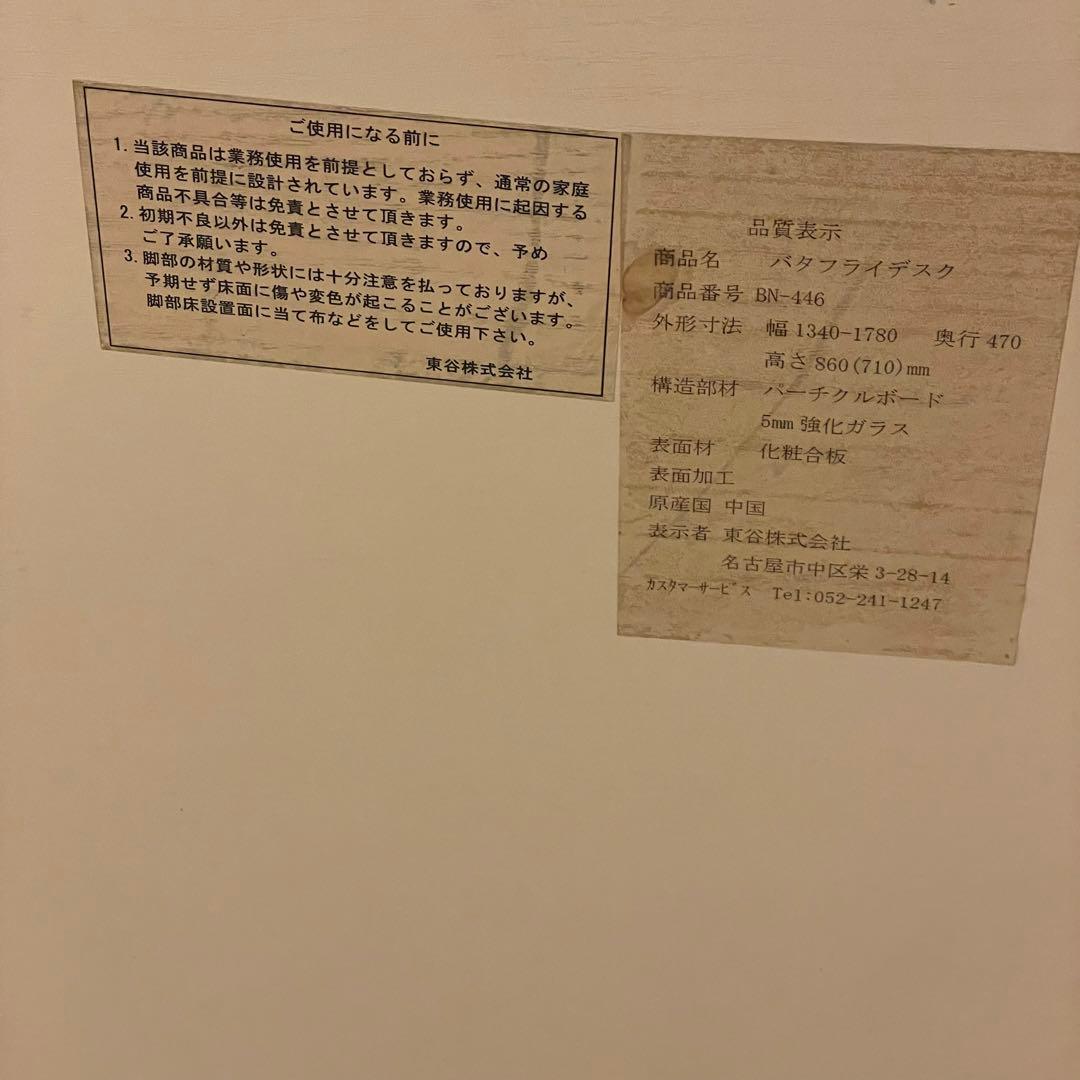 ご使用になる前に
1. 当該商品は業務使用を前提としておらず、通常の家庭
使用を前提に設計されています。業務使用に起因する
商品不具合等は免責とさせて頂きます。
2. 初期不良以外は免責とさせて頂きますので、予め
ご了承願います。
3. 脚部の材質や形状には十分注意を払っておりますが、
予期せず床面に傷や変色が起こることがございます。
脚部床設置面に当て布などをしてご使用下さい。
東谷株式会社
品質表示
商品名 バタフライデスク
商品番号 BN-446
外形寸法 幅1340-1780 奥行470
高さ860(710)mm
構造部材 パーチクルボード
5mm 強化ガラス
表面材 化粧合板
表面加工
原産国 中国
表示者 東谷株式会社
名古屋市中区栄 3-28-14
カスタマーサービス Tel:052-241-1247